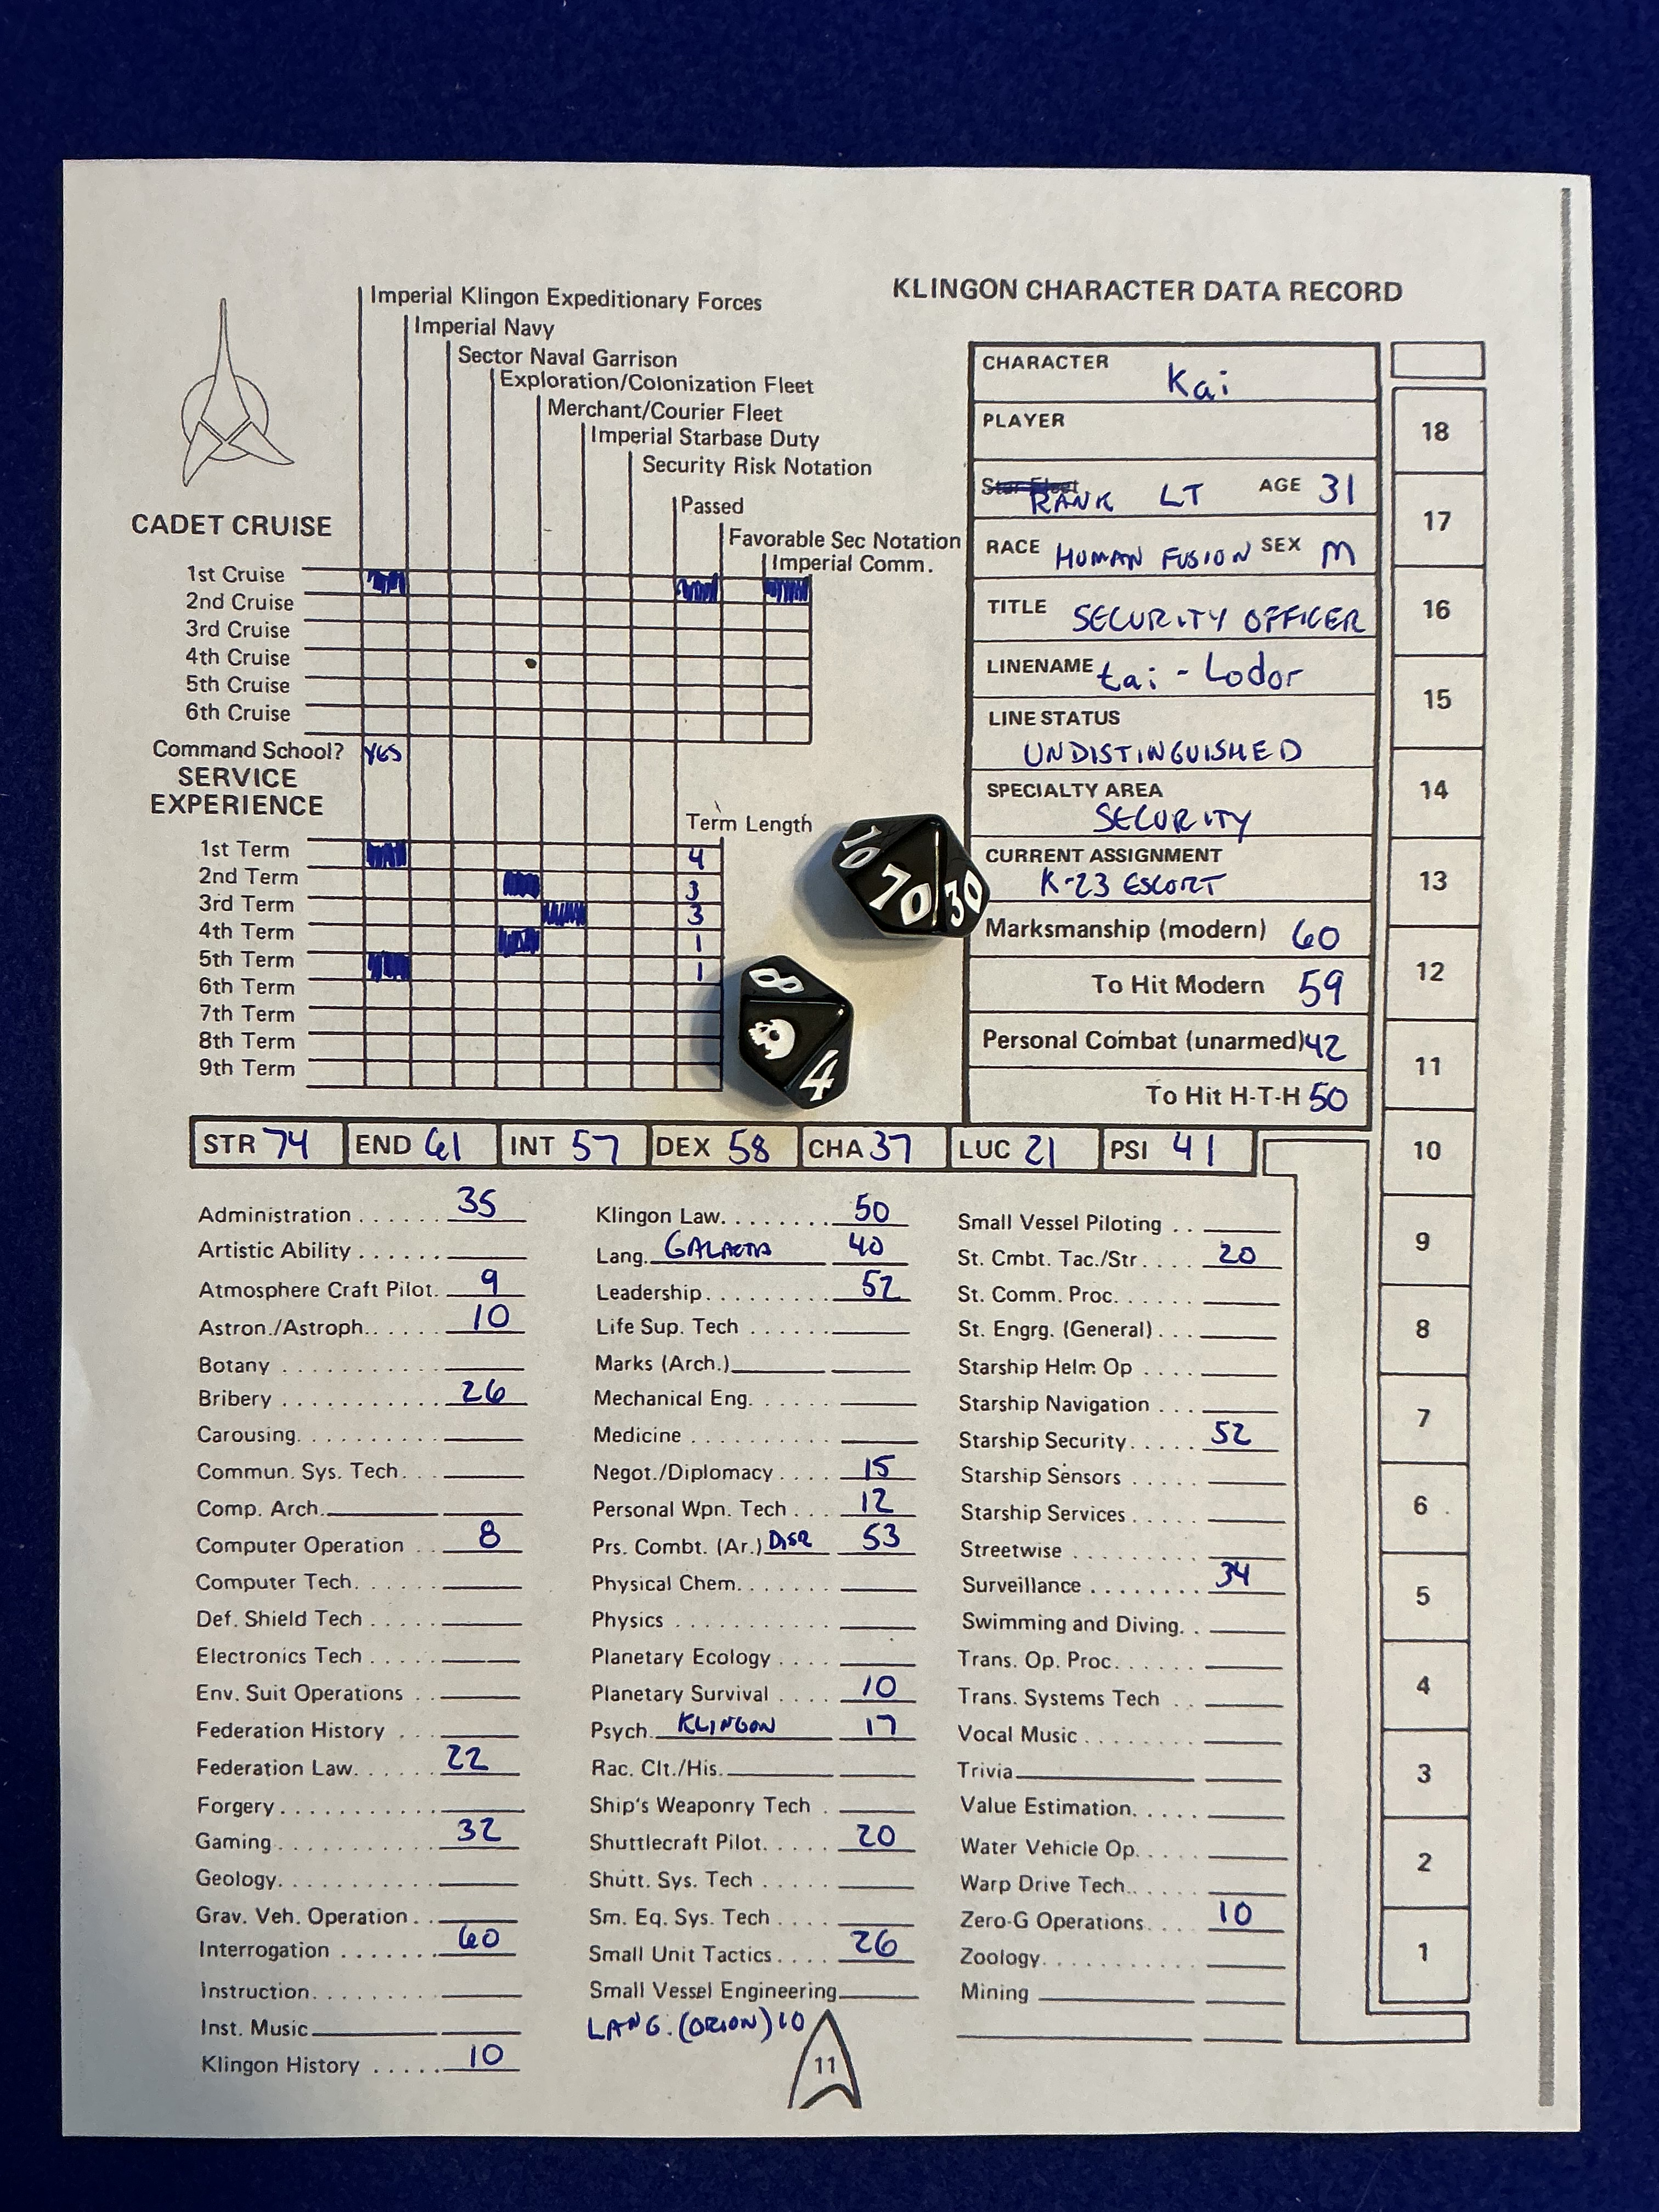 KLINGON CHARACTER DATA RECORD
Imperial Klingon Expeditionary Forces
Imperial Navy
Sector Naval Garrison
Exploration/Colonization Fleet
Merchant/Courier Fleet
Imperial Starbase Duty
Security Risk Notation
Passed
Favorable Sec Notation
Imperial Comm.
CADET CRUISE
1st Cruise
2nd Cruise
3rd Cruise
4th Cruise
5th Cruise
6th Cruise
Command School? YES
SERVICE
EXPERIENCE
Term Length
1st Term 4
2nd Term 3
3rd Term 3
4th Term 1
5th Term 1
6th Term
7th Term
8th Term
9th Term
10 70 30
8 4
CHARACTER Kai
PLAYER
Star Fleet RANK LT AGE 31
RACE HUMAN FUSION SEX M
TITLE SECURITY OFFICER
LINENAME tai - Lodor
LINE STATUS
UNDISTINGUISHED
SPECIALTY AREA
SECURITY
CURRENT ASSIGNMENT
K-23 ESCORT
Marksmanship (modern) 60
To Hit Modern 59
Personal Combat (unarmed) 42
To Hit H-T-H 50
18
17
16
15
14
13
12
11
10
9
8
7
6
5
4
3
2
1
STR 74 END 61 INT 57 DEX 58 CHA 37 LUC 21 PSI 41
Administration . . . . . . 35
Artistic Ability . . . . . .
Atmosphere Craft Pilot. 9
Astron./Astroph. . . . . . 10
Botany . . . . . . . . . . .
Bribery . . . . . . . . . . . 26
Carousing. . . . . . . . . .
Commun. Sys. Tech. . .
Comp. Arch.
Computer Operation . . 8
Computer Tech. . . . . .
Def. Shield Tech . . . . .
Electronics Tech . . . . .
Env. Suit Operations . .
Federation History . . .
Federation Law. . . . . . 22
Forgery . . . . . . . . . . .
Gaming. . . . . . . . . . . 32
Geology. . . . . . . . . . .
Grav. Veh. Operation . .
Interrogation . . . . . . . 60
Instruction. . . . . . . . .
Inst. Music
Klingon History . . . . . 10
Klingon Law. . . . . . . . 50
Lang. 40
Leadership. . . . . . . . . 52
Life Sup. Tech . . . . . .
Marks (Arch.)
Mechanical Eng. . . . . .
Medicine . . . . . . . . . .
Negot./Diplomacy . . . . 15
Personal Wpn. Tech . . . 12
Prs. Combt. (Ar.) DISR 53
Physical Chem. . . . . . .
Physics . . . . . . . . . . .
Planetary Ecology . . . .
Planetary Survival . . . . 10
Psych. KLINGON 17
Rac. Clt./His.
Ship's Weaponry Tech .
Shuttlecraft Pilot. . . . . 20
Shutt. Sys. Tech . . . . .
Sm. Eq. Sys. Tech . . . .
Small Unit Tactics. . . . 26
Small Vessel Engineering
LANG. (ORION) 10
Small Vessel Piloting . .
St. Cmbt. Tac./Str. . . . 20
St. Comm. Proc. . . . . .
St. Engrg. (General) . . .
Starship Helm Op . . . .
Starship Navigation . . .
Starship Security. . . . . 52
Starship Sensors . . . . .
Starship Services . . . . .
Streetwise . . . . . . . . .
Surveillance . . . . . . . . 34
Swimming and Diving. .
Trans. Op. Proc. . . . . .
Trans. Systems Tech . .
Vocal Music . . . . . . . .
Trivia
Value Estimation. . . . .
Water Vehicle Op. . . . .
Warp Drive Tech. . . . . .
Zero-G Operations. . . . 10
Zoology. . . . . . . . . . .
Mining
11